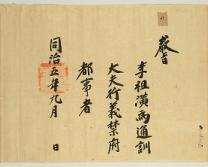 教旨
李祖潢爲通訓
大夫行義禁府
都事者
同治五年九月　日